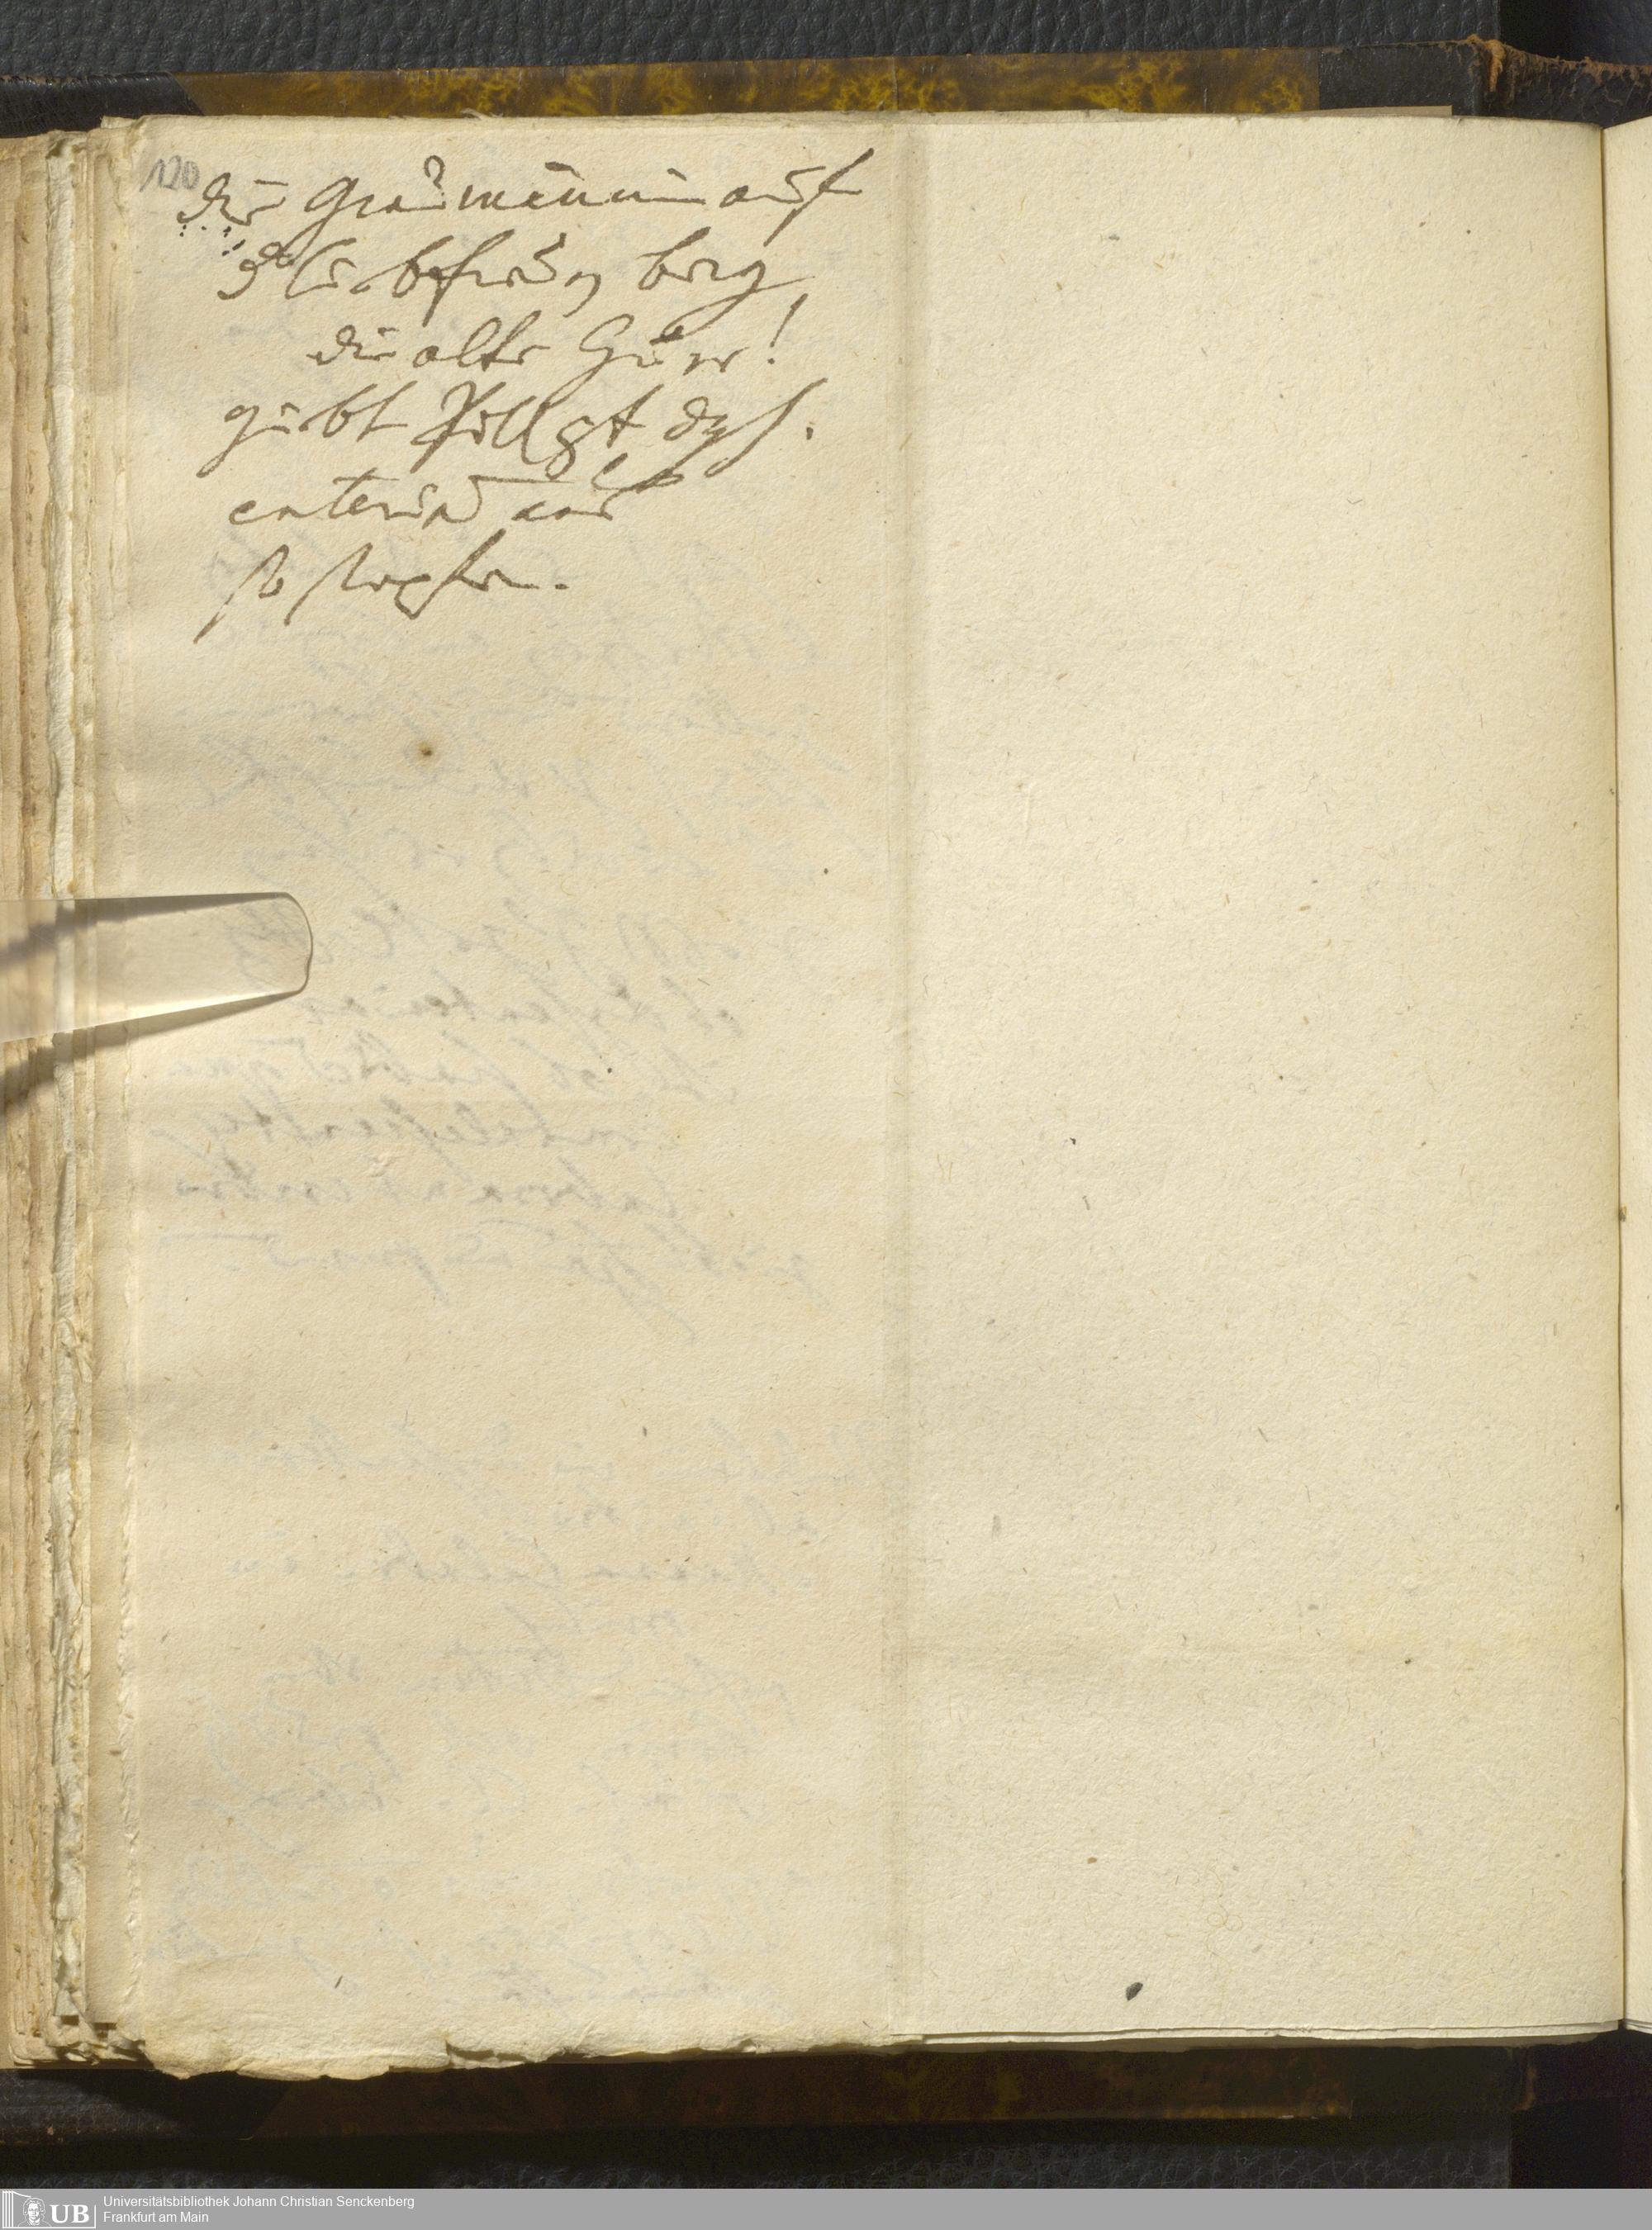 120
die Graumännin auf
liebfrauen berg
die alte Hür!
giebt Pill gt dys.
enteriam und
so stopfen.
UB Universitätsbibliothek Johann Christian Senckenberg
Frankfurt am Main